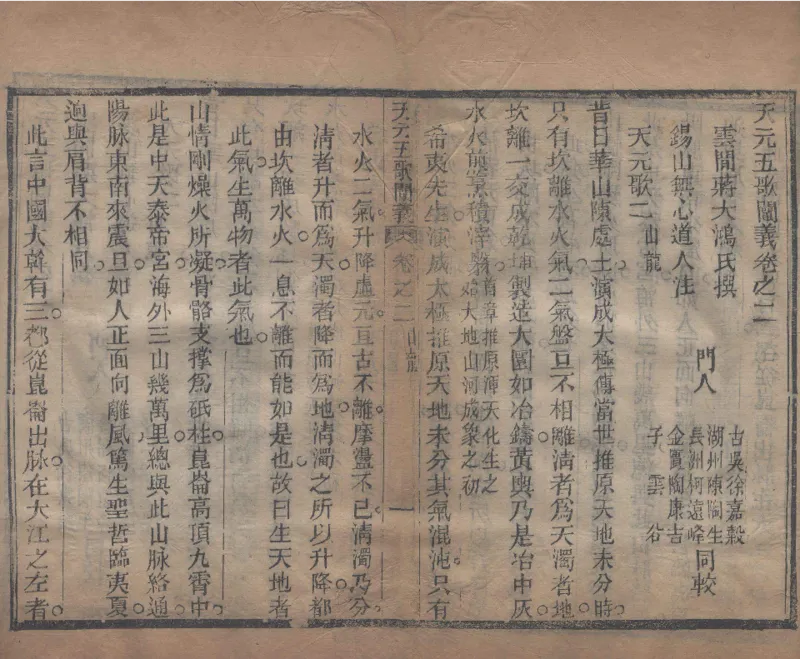 天元五歌闡義卷之二
雲間蔣大鴻氏撰
錫山無心道人注
門人
古吳徐嘉穀
湖州陳陶生
長洲何遠峰
金匱陶康吉
子雲谷
同較
天元歌二山龍
昔日華山陳處士。演成太極傳當世。推原天地未分時。
只有坎離水火氣。二氣盤旦不相離。清者爲天濁者地。
坎離一交成乾坤。製造大圜如冶鑄。黃輿乃是冶中灰。
水火煎熬積滓聚。首章推原渾天化生之始大地山河成象之初
希夷先生演成太極。推原天地未分。其氣混沌。只有
天元五歌闡義 卷之二 山龍 一
水火二氣。升降虛元。亘古不離。摩盪不已。清濁乃分。
清者升而爲天。濁者降而爲地。清濁之所以升降。都
由坎離水火。一息不離而能如是也。故曰生天地者
此氣。生萬物者此氣也。
山情剛燥火所凝。骨骼支撐爲砥柱。崑崙高頂九霄中。
此是中天泰帝宮。海外三山幾萬里。總與此山脈絡通。
陽脈東南來震旦。如人正面向離風。篤生聖哲臨夷夏。
迥與肩背不相同。
此言中國大幹有三。都從崑崙出脈。在大江之左者。